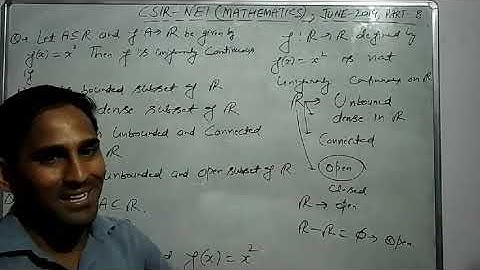 CSIR-NET (MATHEMATICS), JUNE-2014, PART-B
Q. Let A⊆R and f A→R be given by
f(x)=x² Then f is uniformly continuous
if
bounded subset of R
dense subset of R
Unbounded and Connected
R
unbounded and open subset of R.
A⊂R.
f(x)=x²
f:R→R defined by
f(x)=x² is not
uniformly continuous on R
R → Unbound
dense in R
→ Connected
→ Open
Closed
R → open
R-R=ϕ→open